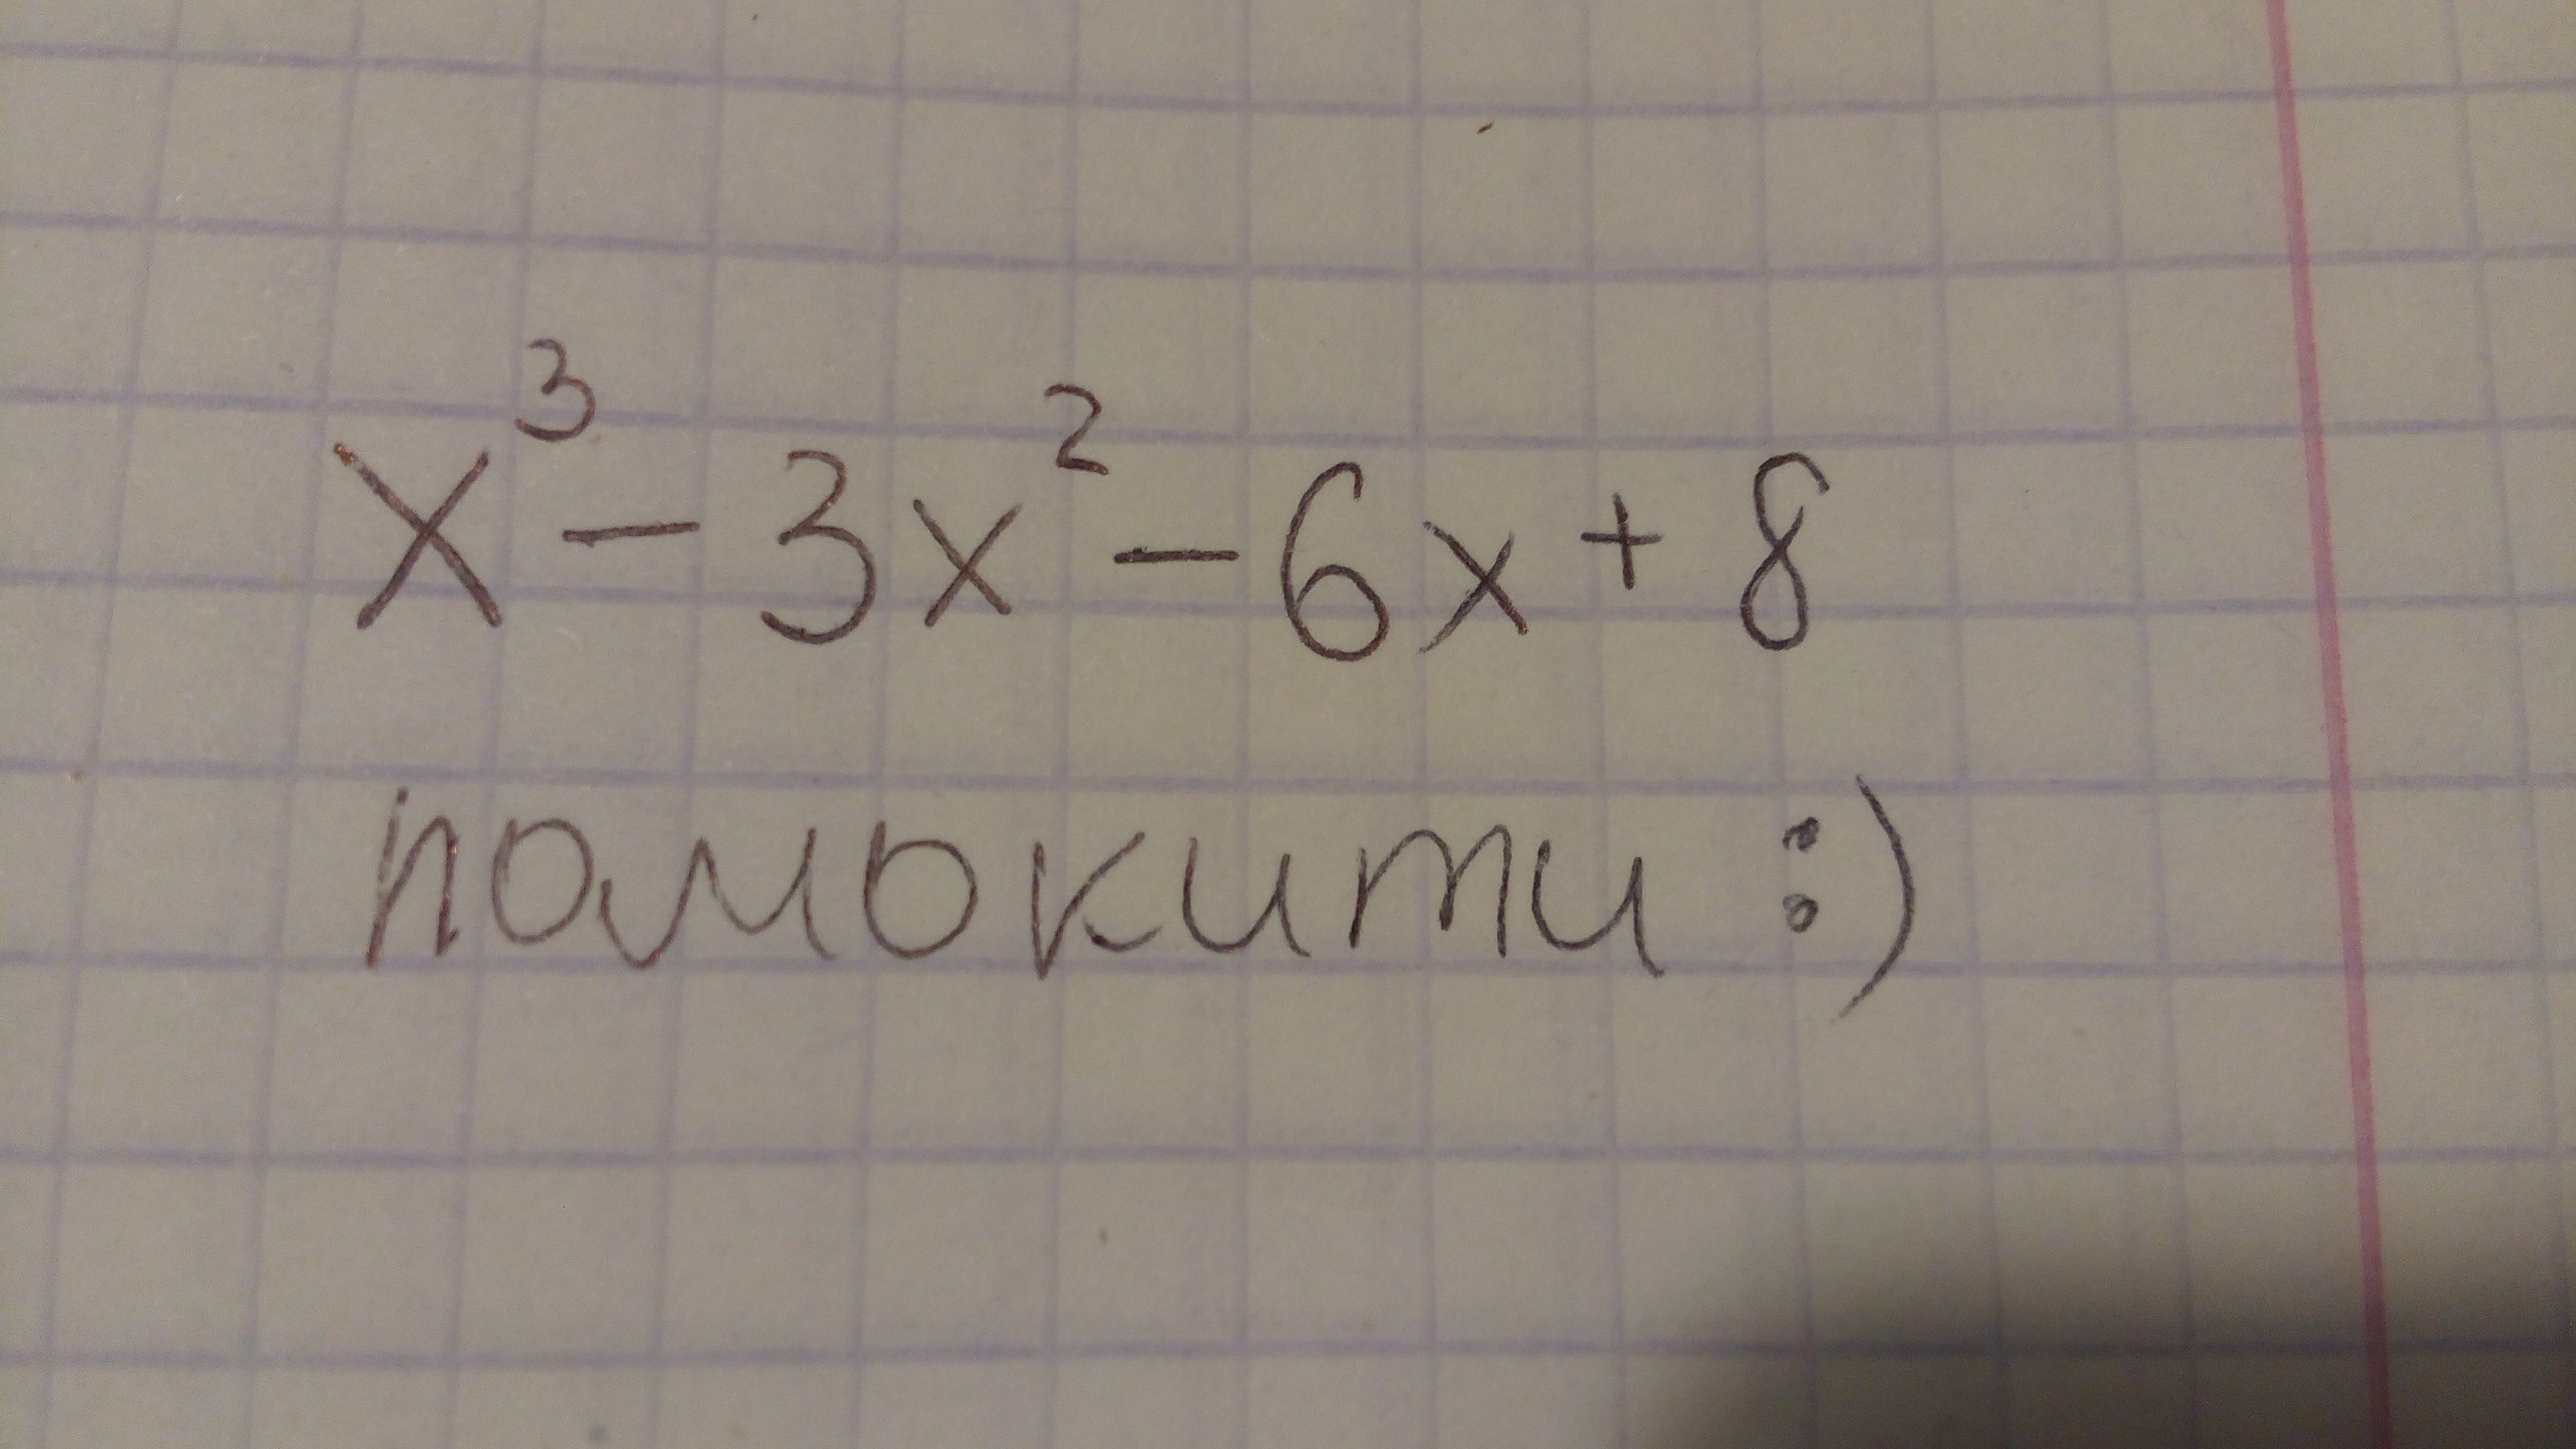 x³ - 3x² - 6x + 8
помокити :)